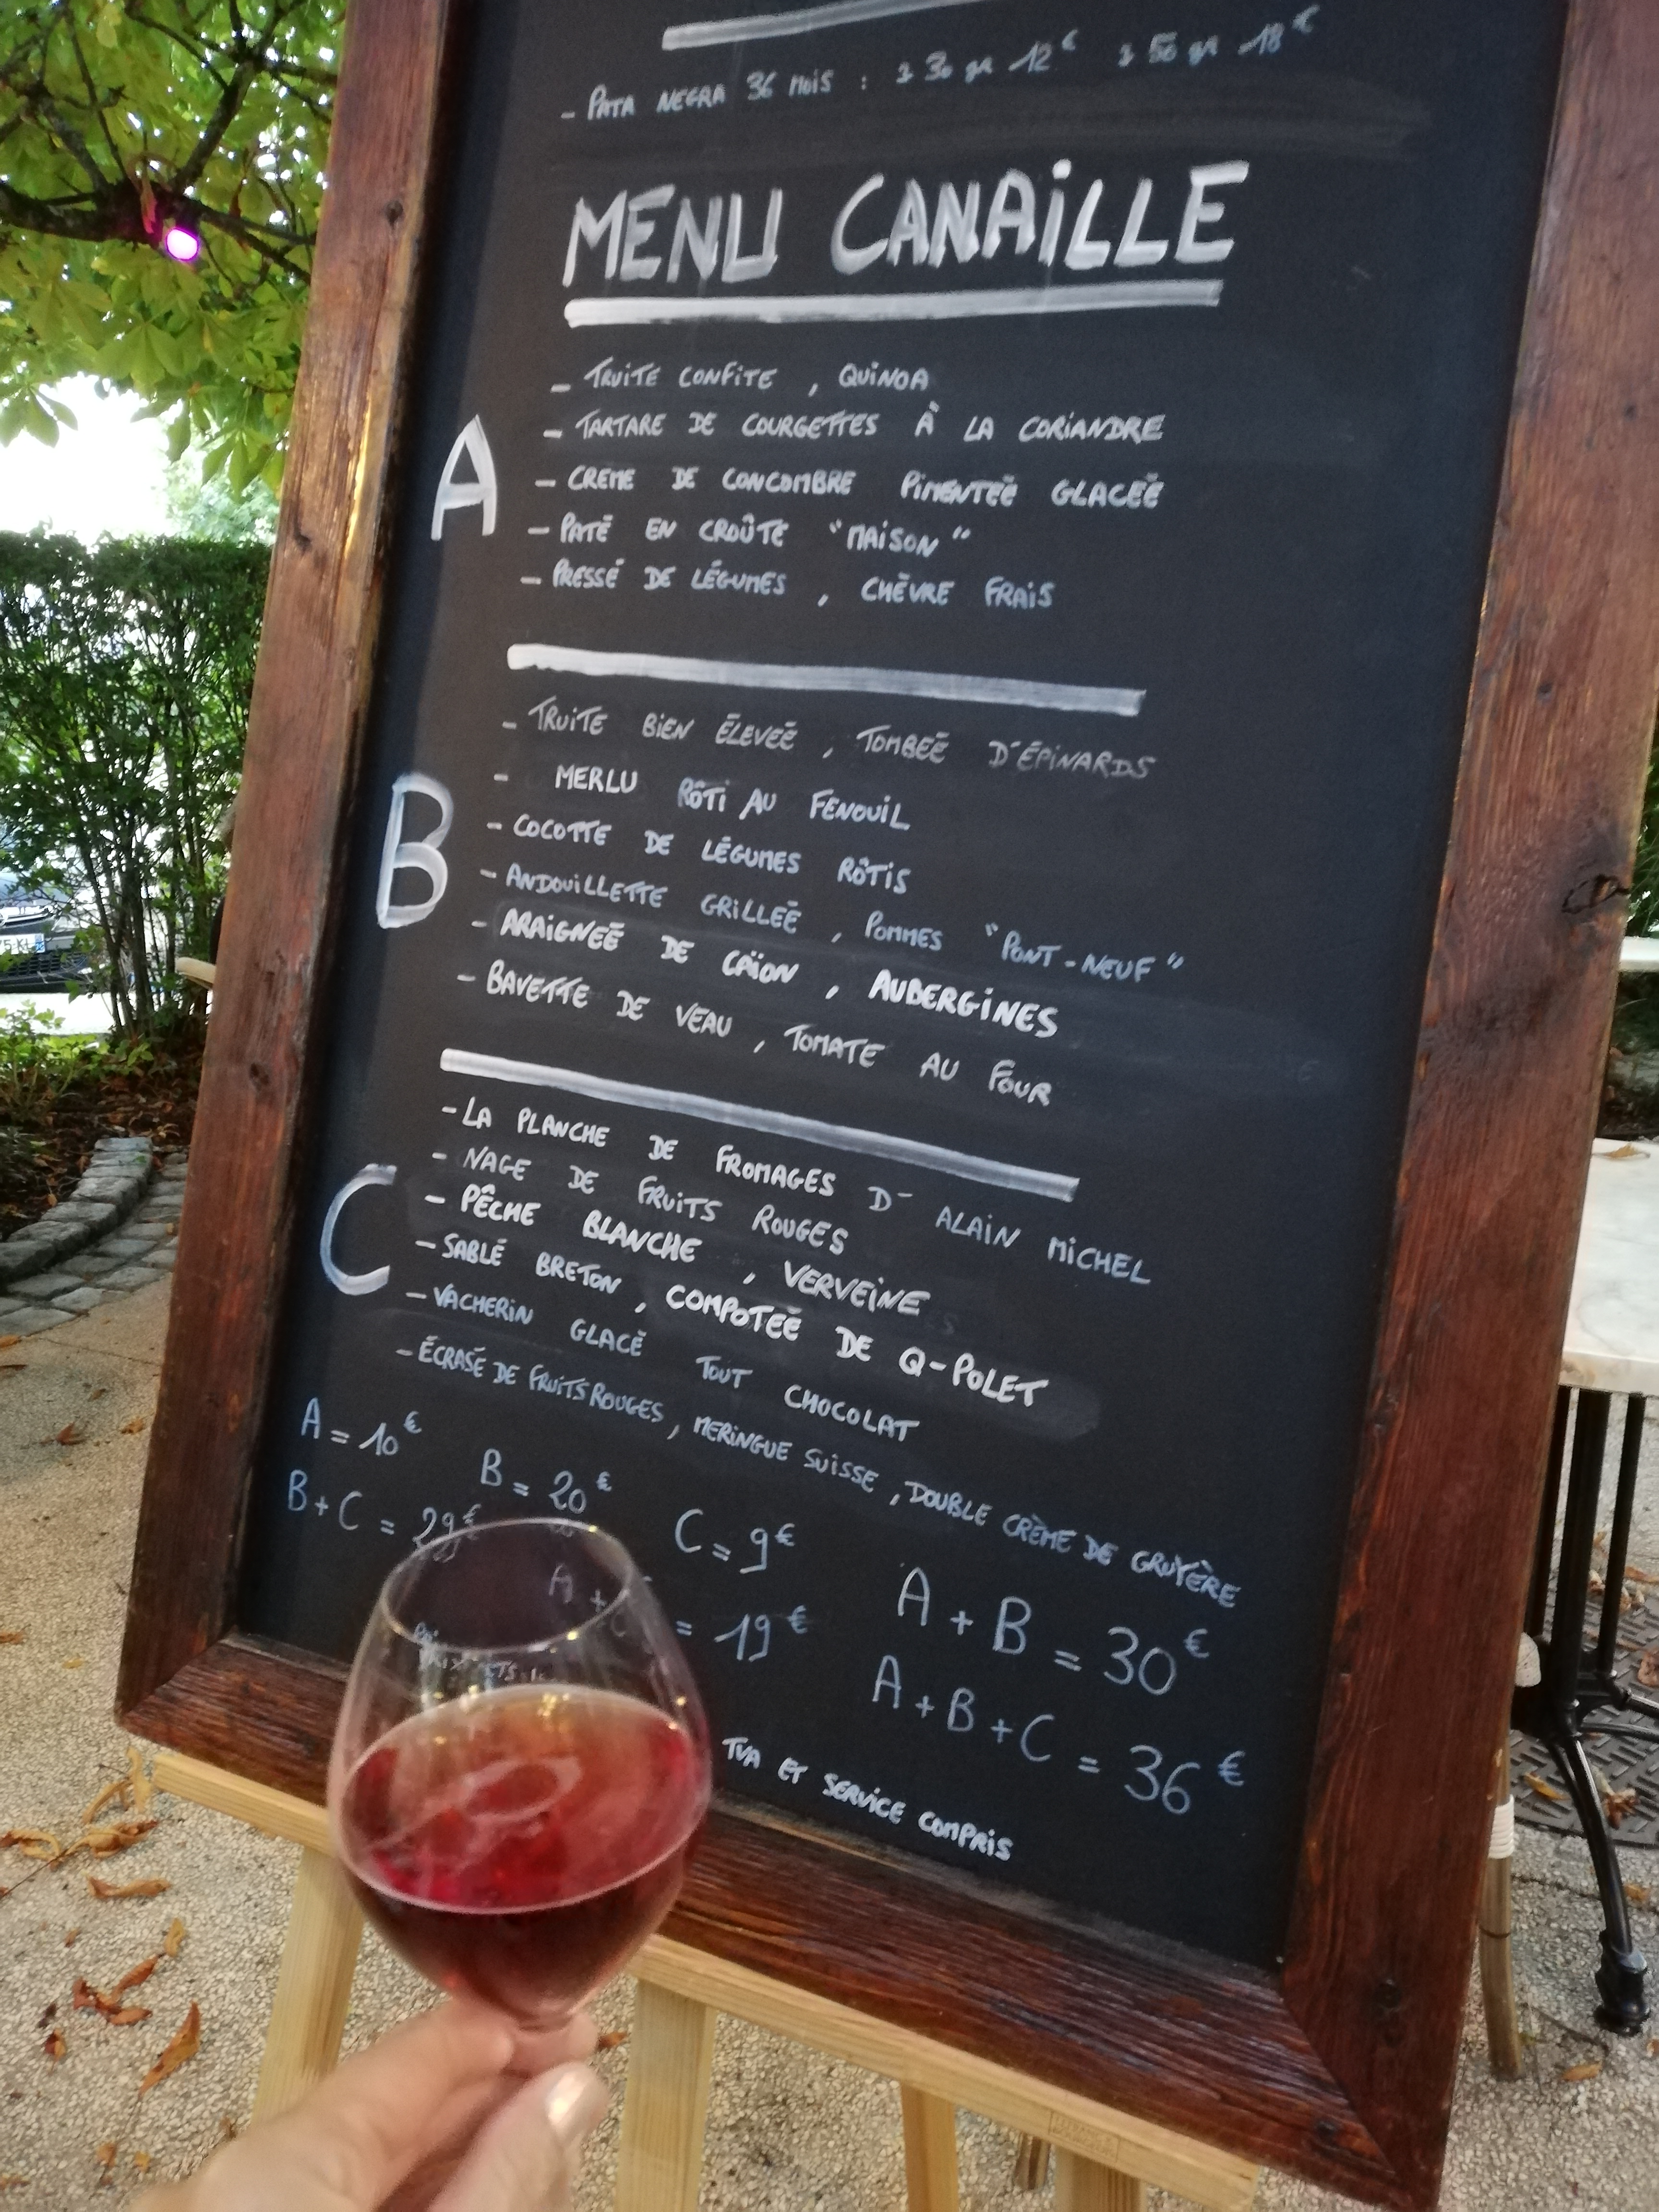 - PATA NEGRA 36 MOIS : 30 gr 12€ 50 gr 18€
MENU CANAILLE
A
- TRUITE CONFITE , QUINOA
- TARTARE DE COURGETTES À LA CORIANDRE
- CREME DE CONCOMBRE PIMENTEÉ GLACEÉ
- PATÉ EN CROÛTE "MAISON"
- PRESSÉ DE LÉGUMES , CHÈVRE FRAIS
B
- TRUITE BIEN ÉLEVEÉ , TOMBEÉ D'ÉPINARDS
- MERLU RÔTI AU FENOUIL
- COCOTTE DE LÉGUMES RÔTIS
- ANDOUILLETTE GRILLEÉ , POMMES "PONT-NEUF"
- ARAIGNEÉ DE CAÏON , AUBERGINES
- BAVETTE DE VEAU , TOMATE AU FOUR
C
- LA PLANCHE DE FROMAGES D' ALAIN MICHEL
- NAGE DE FRUITS ROUGES
- PÊCHE BLANCHE , VERVEINE
- SABLÉ BRETON , COMPOTEÉ DE Q-POLET
- VACHERIN GLACÉ TOUT CHOCOLAT
- ÉCRASÉ DE FRUITS ROUGES , MERINGUE SUISSE , DOUBLE CRÈME DE GRUYÈRE
A = 10€ B = 20€ C = 9€ A + B = 30€
B + C = 29€ A + C = 19€ A + B + C = 36€
TVA ET SERVICE COMPRIS